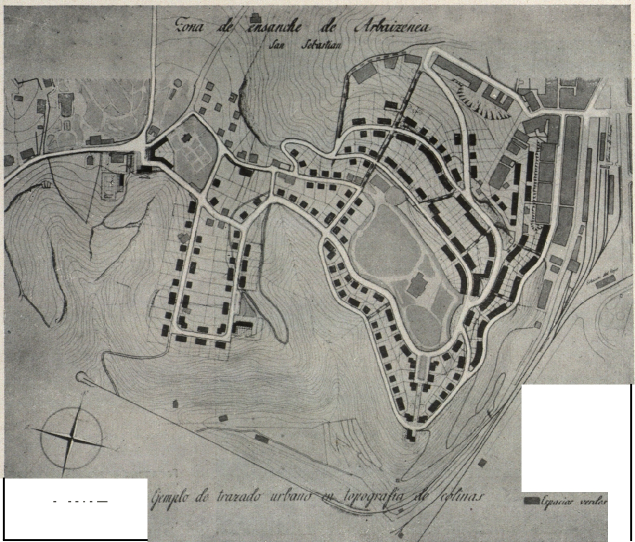 Zona de ensanche de Arbaizenea
San Sebastian
Ejemplo de trazado urbano en topografía de colinas
Espacios verdes